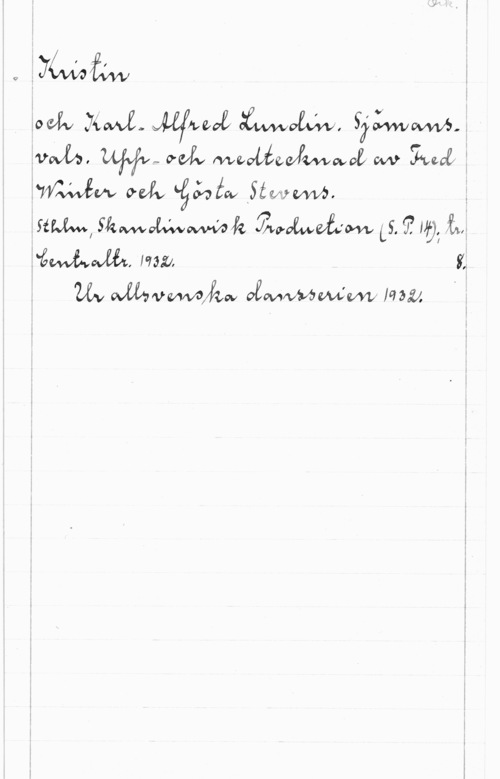 Ork.
Kristin
och Karl-Alfred Lundin. Sjömans-
vals. Upp- och nedtecknad av Fred
Winter och Gösta Stevens.
Sthlm, Skandinavisk Production (S. P. 14); tr.
Centraltr. 1932. 8.
Ur allsvenska dansserien 1932.